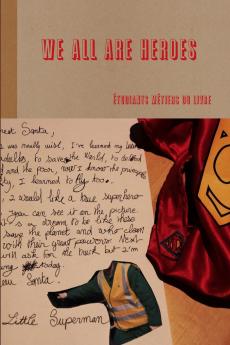 WE ALL ARE HEROES
ÉTUDIANTS MÉTIERS DU LIVRE
rest Santa,
I was really wise, I've learned my
to save the World, to
and the poor, now I know the
ty, I learned to fly too.
, I would like a true superhero
You can see it on the picture
it's a dream to be like
save the planet and who clean
with their great powers. Next
will ask for the but I'm
ng today.
eu Santa.
Little Superman